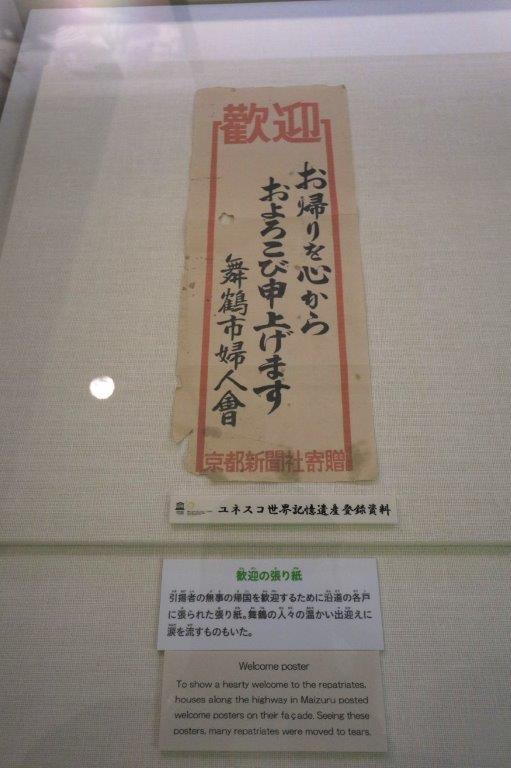 歡迎
お帰りを心から
およろこび申上げます
舞鶴市婦人會
京都新聞社寄贈
ユネスコ世界記憶遺産登録資料
歓迎の張り紙
引揚者の無事の帰国を歓迎するために沿道の各戸
に張られた張り紙。舞鶴の人々の温かい出迎えに
涙を流すものもいた。
Welcome poster
To show a hearty welcome to the repatriates,
houses along the highway in Maizuru posted
welcome posters on their façade. Seeing these
posters, many repatriates were moved to tears.